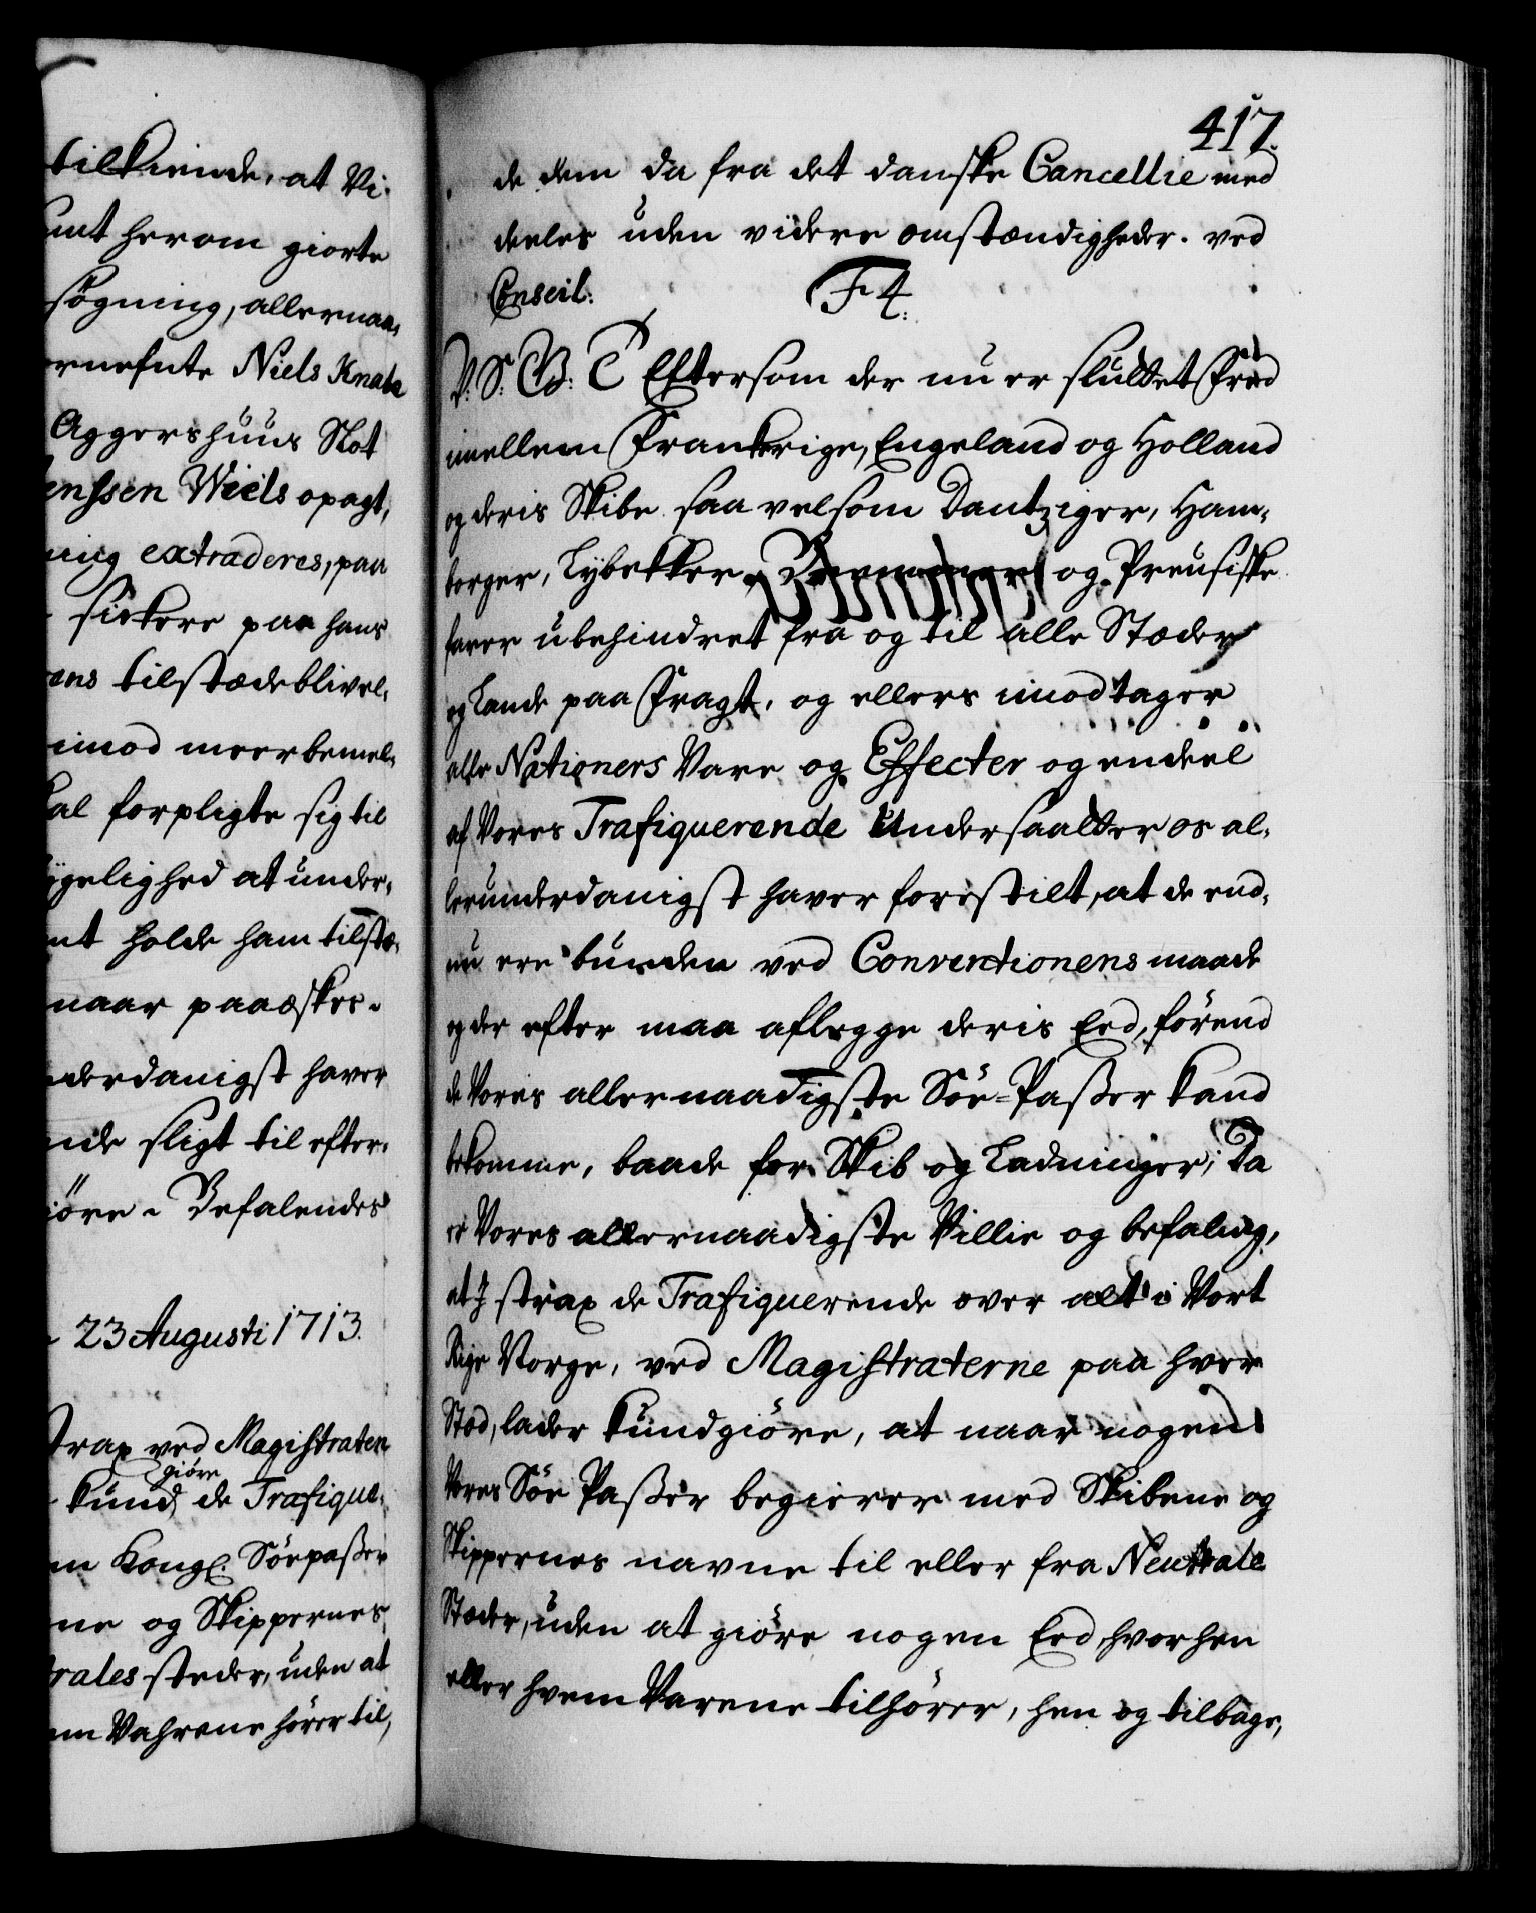 tilkiende, at Vi
herom giorte
søgning, allernaa-
ernefnte Niels Knabe
Aggershuus Slot
enssen Wiels opagt,
ing extraderes, paa
sickere paa hans
ens tilstædeblivel-
imod meerbemel-
al forpligte sig til
ygelighed at under-
nt holde ham tilstæ-
naar paaæskes.
derdanigst haver
nde sligt til efter-
iöre. Befalendes
23 Augusti 1713.
strax ved Magistraten
giöre
kund de Trafique-
m Kongl. Söepasser
ne og Skippernes
rales steder, uden at
em Vahrene hörer til,
417.
de dem da fra det danske Cancellie med
deeles uden videre omstændigheder. ved
Conseil.
F4.
V. S. G. B. T. Eftersom der nu er sluttet Fred
imellem Frankrige, Engeland og Holland
og deris Skibe saa velsom Dantziger, Ham-
borger, Lybekker, Bremmer og Preusiske
farer ubehindret fra og til alle Stæder
og Lande paa Fragt, og ellers imodtager
alle Nationers Vare og Effecter og endeel
af Vores Trafiquerende Undersaatter os al-
lerunderdanigst haver forestilt, at de end-
nu ere bunden ved Conventionens maade
og der efter maa aflegge deris Eed, förend
de Voris allernaadigste Söe-Passer kand
bekomme, baade for Skib og Ladninger; Da
er Vores allernaadigste Villie og befaling,
at I strax de Trafiquerende over alt i Vort
Rige Norge, ved Magistraterne paa hver
Stæd, lader kundgiöre, at naar nogen
Vores Söe Passer begierer med Skibene og
Skippernes navne til eller fra Neutrale
Stæder, uden at giöre nogen Eed, hvorhen
eller hvem Varene tilhörer, hen og tilbage,